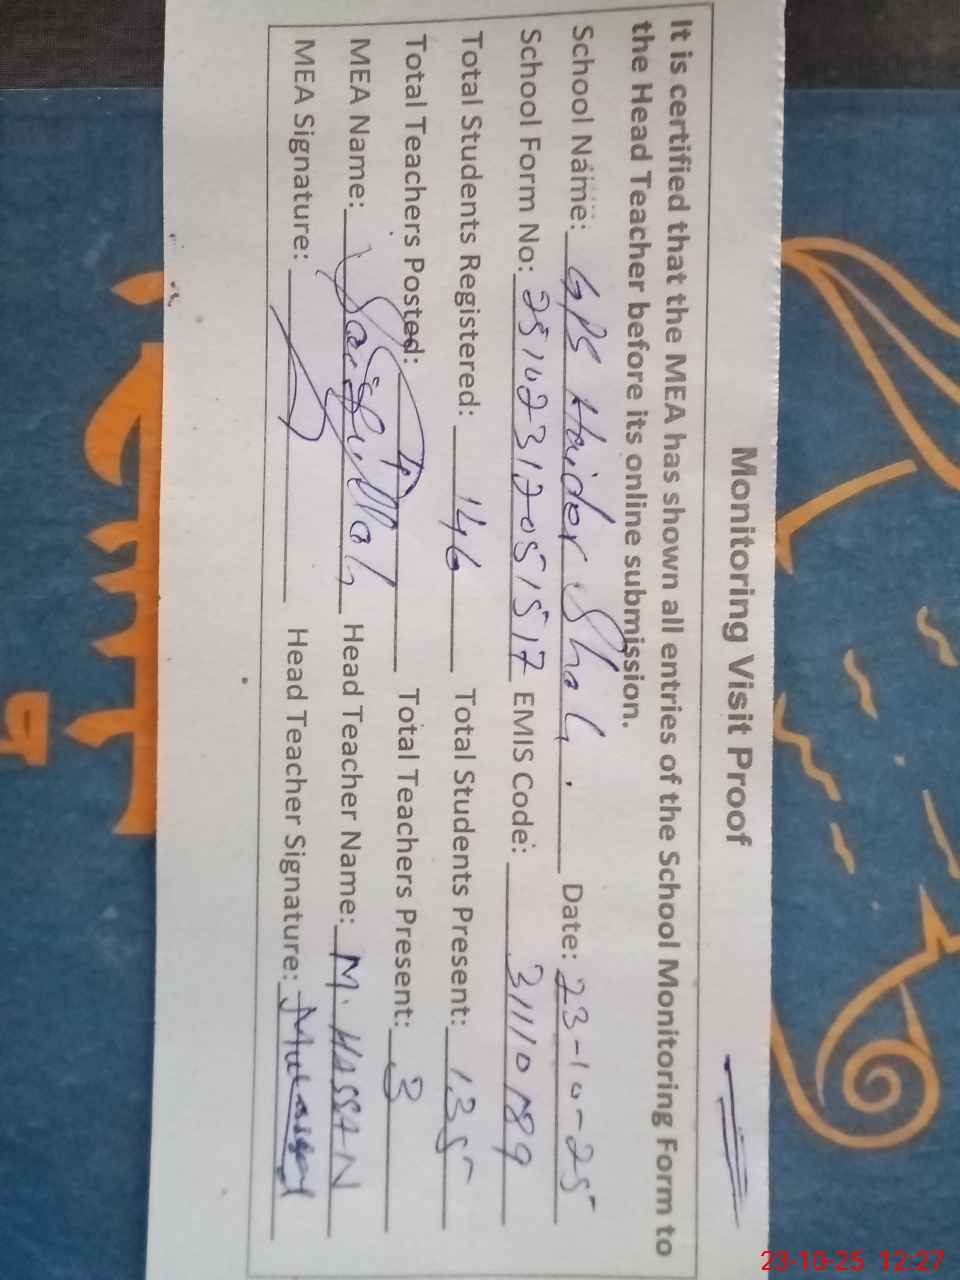 Monitoring Visit Proof
It is certified that the MEA has shown all entries of the School Monitoring Form to
the Head Teacher before its online submission.
School Name: GPS Haider Shah. Date: 23-10-25
School Form No: EMIS Code: 31110189
Total Students Registered: 146 Total Students Present: 135
Total Teachers Posted: 4 Total Teachers Present: 3
MEA Name: Saifullah Head Teacher Name: M. HASSAN
MEA Signature: Head Teacher Signature:
23-10-25 12:27